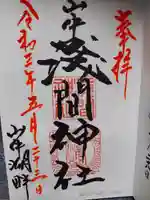 奉拝
山中
浅間神社
令和三年五月二十三日
山中湖畔